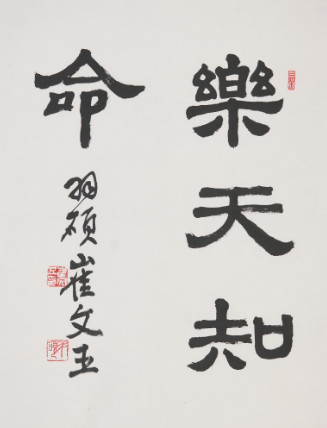 樂天知
命
羽硯崔文玉